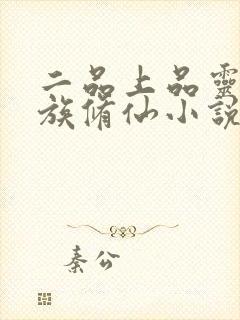 二品上品靈
族脩仙小說
秦公